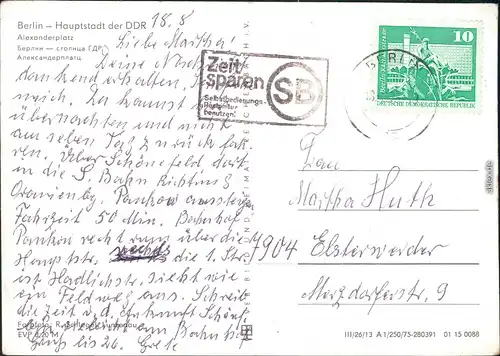 Berlin – Hauptstadt der DDR
Alexanderplatz
Берлин — столица ГДР
Александерплатц
18.8
Liebe Martha!
Deine Nach
dankend erhalten,
mich. Du kannst
übernachten und nicht
am selben Tag zurück fah
ren. Über Schönefeld dort
in die S. Bahn Richtung
Oranienbg. Pankow aussteigen
Fahrzeit 50 Min. Bahnhof
Pankow recht rum über die
Hauptstr. die 1. Str.
ist Hadlichstr. sieht wie
ein Feldweg aus. Schreib
die Zeit v. d. Ankunft Schönf.
am Bahnhof
Gruß bis 26. Grete
EVP 0,20 M
Zeit
sparen
Selbstbedienungs-
benutzen!
SB
10
DEUTSCHE DEMOKRATISCHE REPUBLIK
Frau
Martha Huth
7904 Elsterwerder
Merzdorferstr. 9
III/26/13 A 1/250/75-280391 01 15 0088